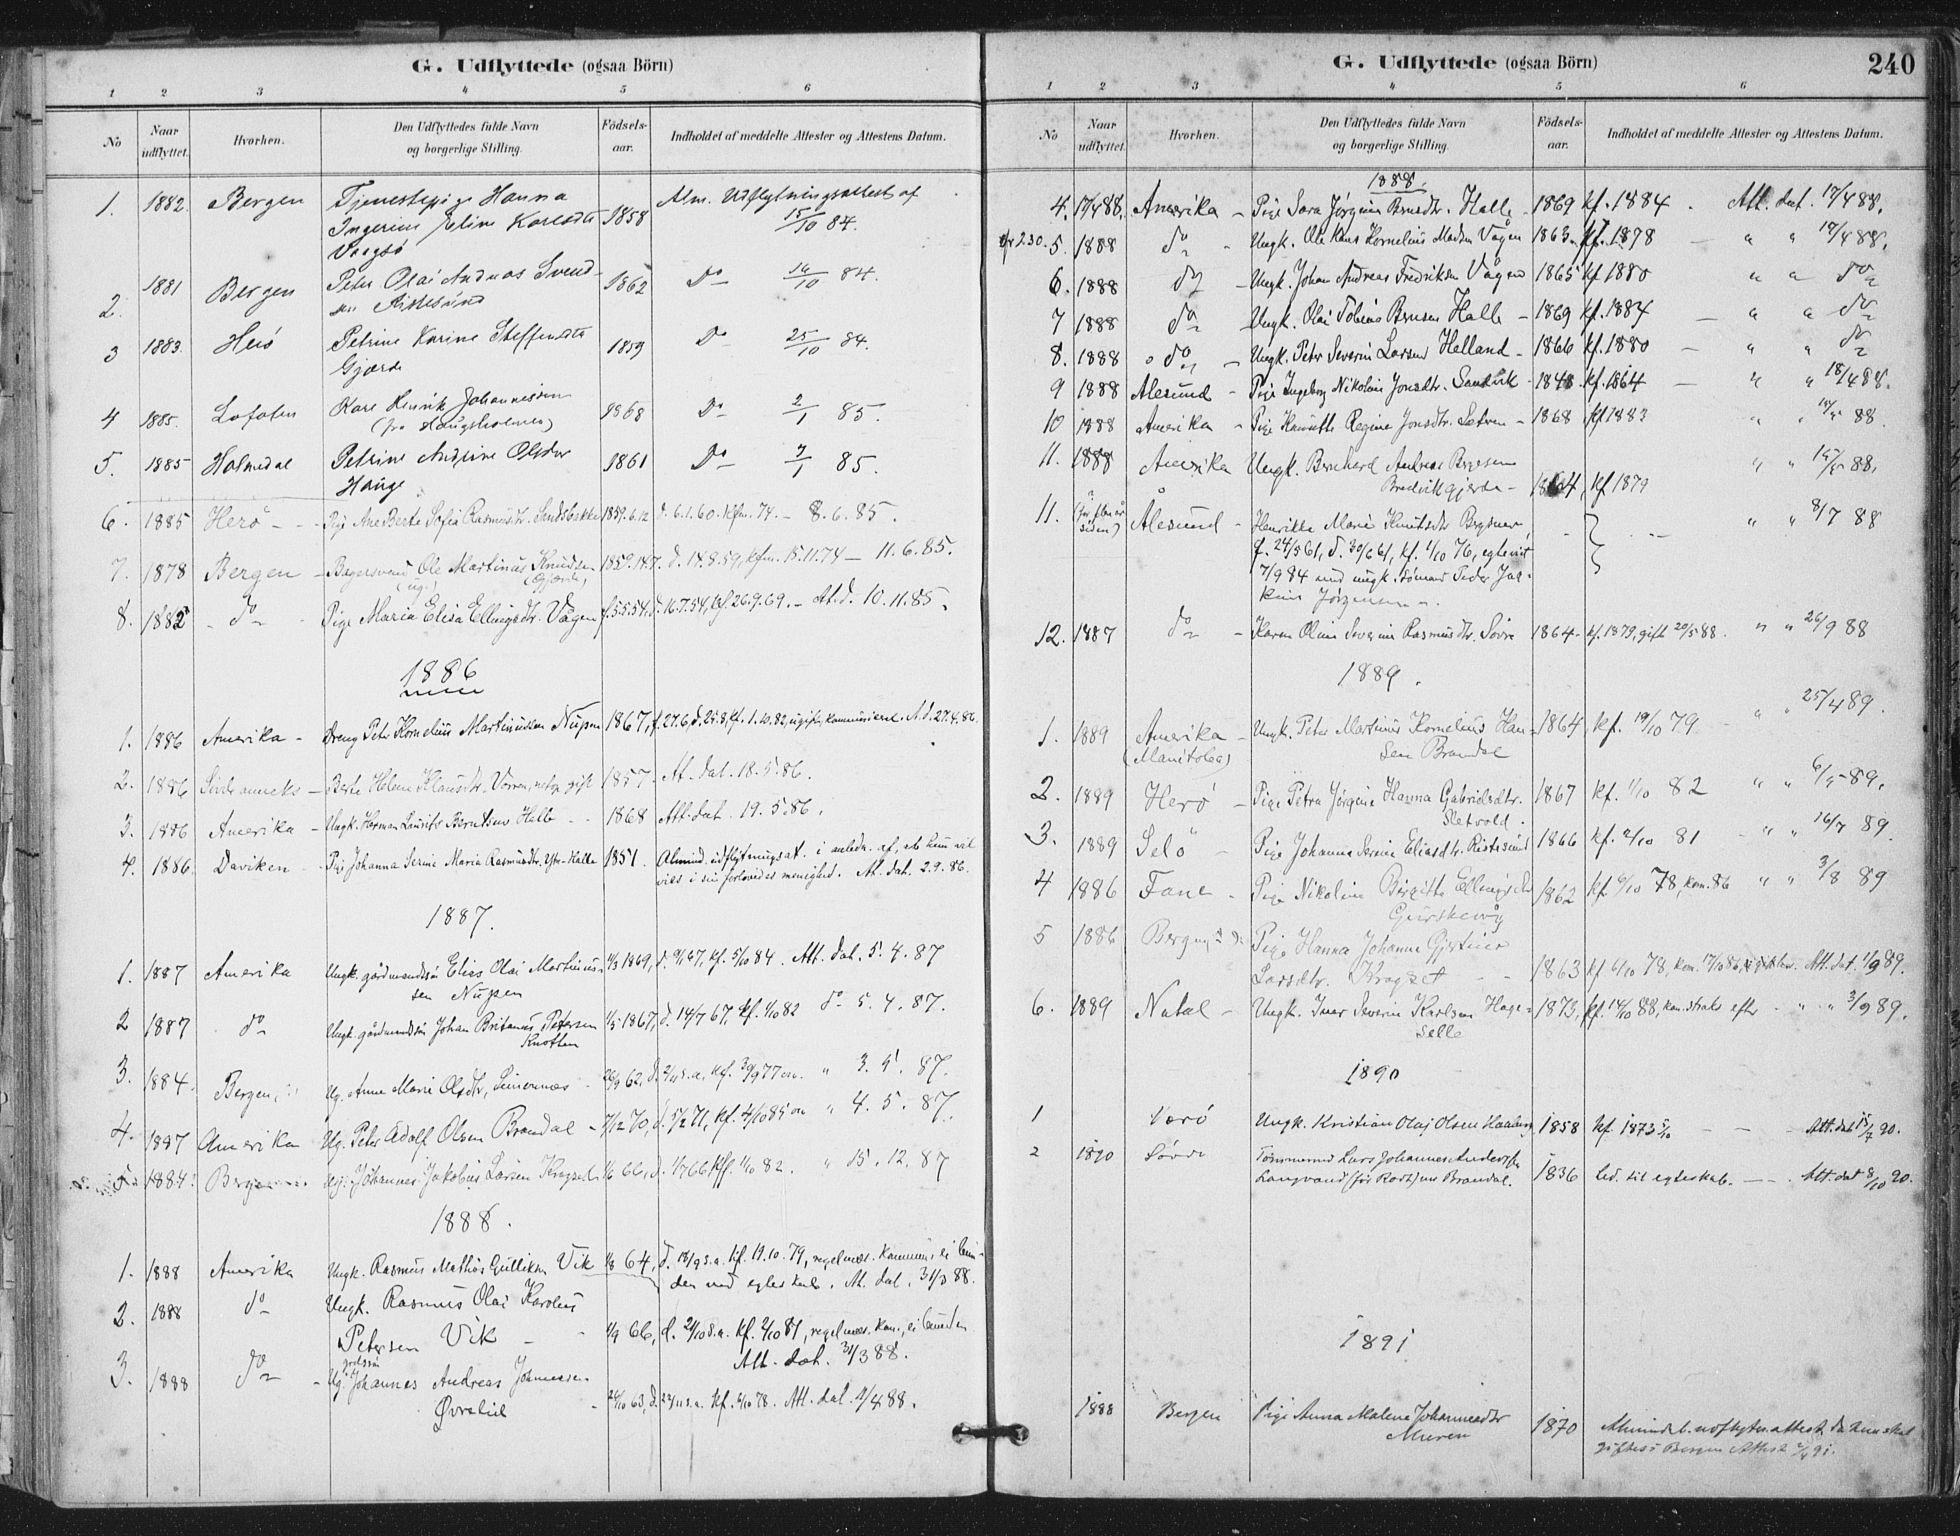 G. Udflyttede (ogsaa Börn)
1 2 3 4 5 6
No Naar udflyttet. Hvorhen. Den Udflyttedes fulde Navn og borgerlige Stilling. Födsels-aar. Indholdet af meddelte Attester og Attestens Datum.
1. 1882. Bergen Tjenestepige Hanna Alm. Udflytningsattest af
Ingerine Eline Karlsdtr 1858 15/10 84.
Vaagsø
2. 1881 Bergen Peter Olai Andreas Svend- 1862 Do 16/10 84.
sen Ristesund
3 1883. Herö Petrine Karine Steffensdtr 1859 Do 25/10 84.
Gjærde
4 1885. Lofoten Kare Henrik Johannessen 1868 Do 2/1 85.
(fra Haugsholmen)
5. 1885 Holmedal Petrine Andrine Olsdtr 1861 Do 7/1 85.
Hauge
6. 1885 Herö Pige Ane Berte Sofia Rasmusdtr. Sandsbakke 1859.6.12 d. 6.1.60. Kfm. 74. – 8.6.85.
7. 1878 Bergen – Bagersvend Ole Martinus Knudsen 1859.14.7. d. 14.8.59, kfm. 15.11.74 – 11.6.85.
(ug.) (Gjærde)
8. 1882 do Pige Maria Elisa Ellingsdtr. Vågen f.5.5.54, d. 16.7.54, kf. 26.9.69. – At. d. 10.11.85.
1886
1. 1886 Amerika – Dreng Peter Kornelius Martinussen Nupen 1867, f. 27.6, d. 25.8, kf. 1.10.82, ugift, kommuniceret. A. d. 27.4.86.
2. 1886 Søvde anneks – Berte Helene Klausdtr. Vorren, netop gift 1857. At. dat. 18.5.86.
3. 1886 Amerika – Ungk. Herman Laurits Berntsen Halle 1868 Att. dat. 19.5.86.
4. 1886 Daviken – Pige Johanna Serine Maria Rasmusdtr. Ytre-Halle 1851. Almind. udflytningsat. i anledn. af, at hun vil
vies i sin forlovedes menighed. At. dat. 2.9.86.
1887.
1. 1887 Amerika Ungk. gårdmandssøn Elias Olai Martinus- 1869, kf. 5/10 84. Att. dat. 5.4.87
sen Nupen
2 1887 do Ungk. gårdmandssøn Johan Britanus Petersen 1/5 1867, d. 14/7 67, kf. 1/10 82 do 5.4.87.
Knotten
3. 1884. Bergen Ug. Anne Marie Olsdtr. 26/9 62, d. 2/11 s.a., kf. 30/9 77 " 3.5.87.
4. 1887 Amerika Ug. Peter Adolf Olsen Brandal – 7/12 70, d. 5/2 71, kf. 4/10 85 " 4.5.87.
5 1884. Bergen Ug. Johannes Jakobus Larsen Kragset 1/6 66, d. 1/7 66 kf. 1/10 82 " 15.12.87
1888.
1. 1888 Amerika Ungk. Rasmus Mathias Gulliksen Vik 1/8 64, d. 18/9 s.a. kf. 19.10.79, regelmæs. kommun., ei bun-
den ved egteskab. At. dat. 31/3 88.
2. 1888 do Ungk. Rasmus Olai Karolus
Petersen Vik – 1/9 66, d. 21/10 s.a. kf. 2/10 81, regelmæs. kom., ei bunden
Att. dat. 31/3 88.
3. 1888 do – Ug. Johannes Andreas Johannessen
Øvrelid 24/10 63, d. 22/11 s.a. kf. 6/10 78. Att. dat. 4/4 88.
G. Udflyttede (ogsaa Börn) 240
1 2 3 4 5 6
No Naar udflyttet. Hvorhen. Den Udflyttedes fulde Navn og borgerlige Stilling. Födsels-aar. Indholdet af meddelte Attester og Attestens Datum.
1888.
4. 17/4 88. Amerika – Pige Sara Jørgine Berntsdtr. Halle – 1869 kf. 1884. Att. dat. 17/4 88.
5. 1888 do Ungk. Ole Kornelius Madsen Vågen 1863. kf. 1878 – " " 17/4 88.
6. 1888 do – Ungk. Johan Andreas Fredriksen Vågen 1865 kf. 1880 " " do
7 1888 do – Ungk. Olai Tobias Berntsen Halle – 1869 kf. 1884 – " " do
8. 1888 do – Ungk. Peter Severin Larsen Helland – 1866 kf. 1880 – " " do
9 1888 Alesund – Pige Ingeborg Nikoline Jonsdtr. Sandvik – 1848. kf. 1864 – " " 18/4 88.
10 1888 Amerika – Pige Henriette Regine Jonsdtr. Sætren – 1868 kf. 1883 " " 88.
11. 1888 Amerika Ungk. Bernhard Andreas " " 88.
Bredvikgjerde – 1864, kf. 1879
11. (for flere år siden) Ålesund – Henrikka Marie Knutsdtr " " 8/7 88
f. 24/5 61, d. 30/6 61, kf. 1/10 76, egteviet
7/9 84 med ungk. sømand Peder
Jørgensen
12. 1887 do – Karen Oline Severine Rasmusdtr. Søvre 1864 – kf. 1879, gift 20/5 88. " " 26/9 88
1889.
1. 1889 Amerika – Ungk. Peter Martinus Kornelius Han- 1864, kf. 19/10 79 – " " 25/4 89.
(Manitoba) sen Brandal
2. 1889 Herö – Pige Petra Jørgine Hanna Gabrielsdtr. 1867 kf. 1/10 82 " " 6/5 89.
Sletvold.
3. 1889 Selö – Pige Johanna Serine Eliasdtr. Ristesund 1866 kf. 2/10 81 – " " 16/7 89.
4 1886 Fane – Pige Nikoline Birgitte Ellingsdtr 1862 kf. 6/10 78, kom. 86 " " 3/8 89
Gurskevåg
5 1886 Bergen Pige Hanna Johanne Gjertine
Larsdtr. Kragset 1863 kf. 6/10 78, kom. 17/10 86, Att. dat. 1/9 89.
6. 1889 Natal – Ungk. Ivar Severin Karlsen Hage- 1873, kf. 14/10 88, kom. straks efter " " 3/9 89.
selle
1890
1 Værö Ungk. Kristian Olaj Olsen 1858 kf. 1873 5/10 – – Att. dat. 15/7 90.
2 1890 Søvde Tømmermand Lars Johannes Andersen
Langvand (før Rødt) nu Brandal. 1836 led. til egteskab. – – Att. dat. 8/10 90.
1891
1888 Bergen Pige Anna Malene Johannesdtr 1870 Almindel. udflytn. attest da hun skal
Myren giftes i Bergen Attest 91.